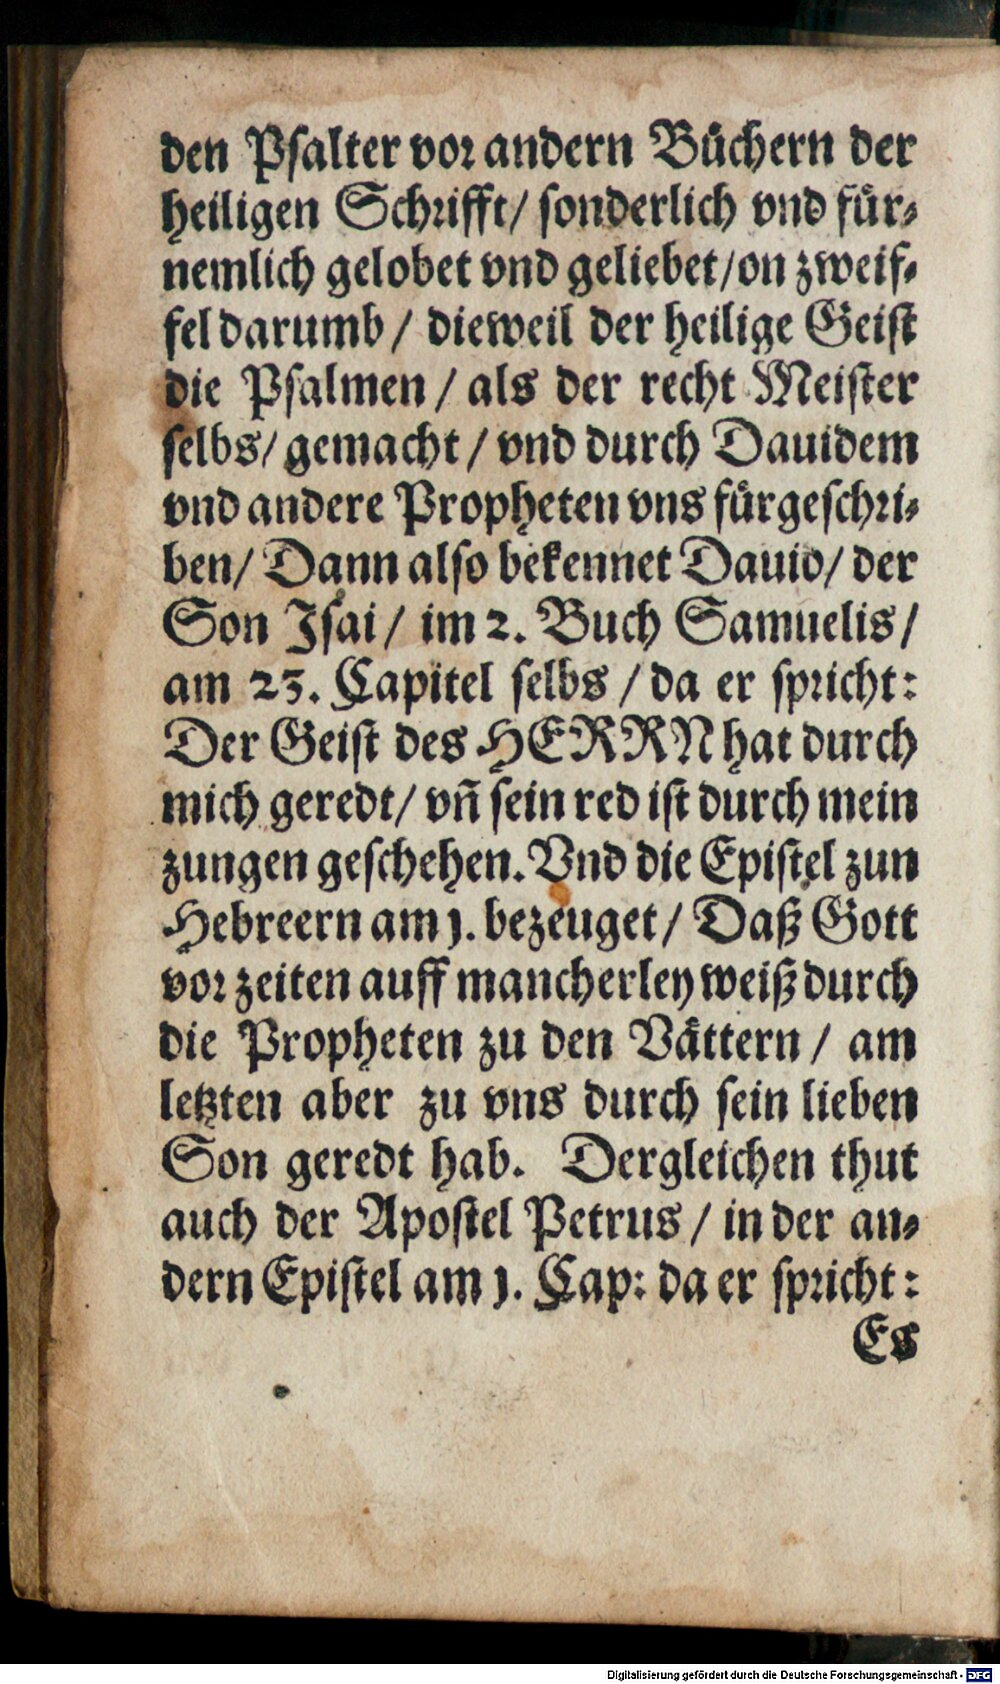 den Psalter vor andern Bůchern der
heiligen Schrifft/ sonderlich vnd fůr⸗
nemlich gelobet vnd geliebet/on zweif⸗
fel darumb / dieweil der heilige Geist
die Psalmen / als der recht Meister
selbs/ gemacht / vnd durch Dauidem
vnd andere Propheten vns fůrgeschri⸗
ben/ Dann also bekennet Dauid/ der
Son Isai / im 2. Buch Samuelis /
am 23. Capitel selbs / da er spricht:
Der Geist des HERRN hat durch
mich geredt/ vñ sein red ist durch mein
zungen geschehen. Vnd die Epistel zun
Hebreern am 1. bezeuget / Daß Gott
vor zeiten auff mancherley weiß durch
die Propheten zu den Våttern / am
letzten aber zu vns durch sein lieben
Son geredt hab. Dergleichen thut
auch der Apostel Petrus / in der an⸗
dern Epistel am 1. Cap: da er spricht:
Es
Digitalisierung gefördert durch die Deutsche Forschungsgemeinschaft - DFG